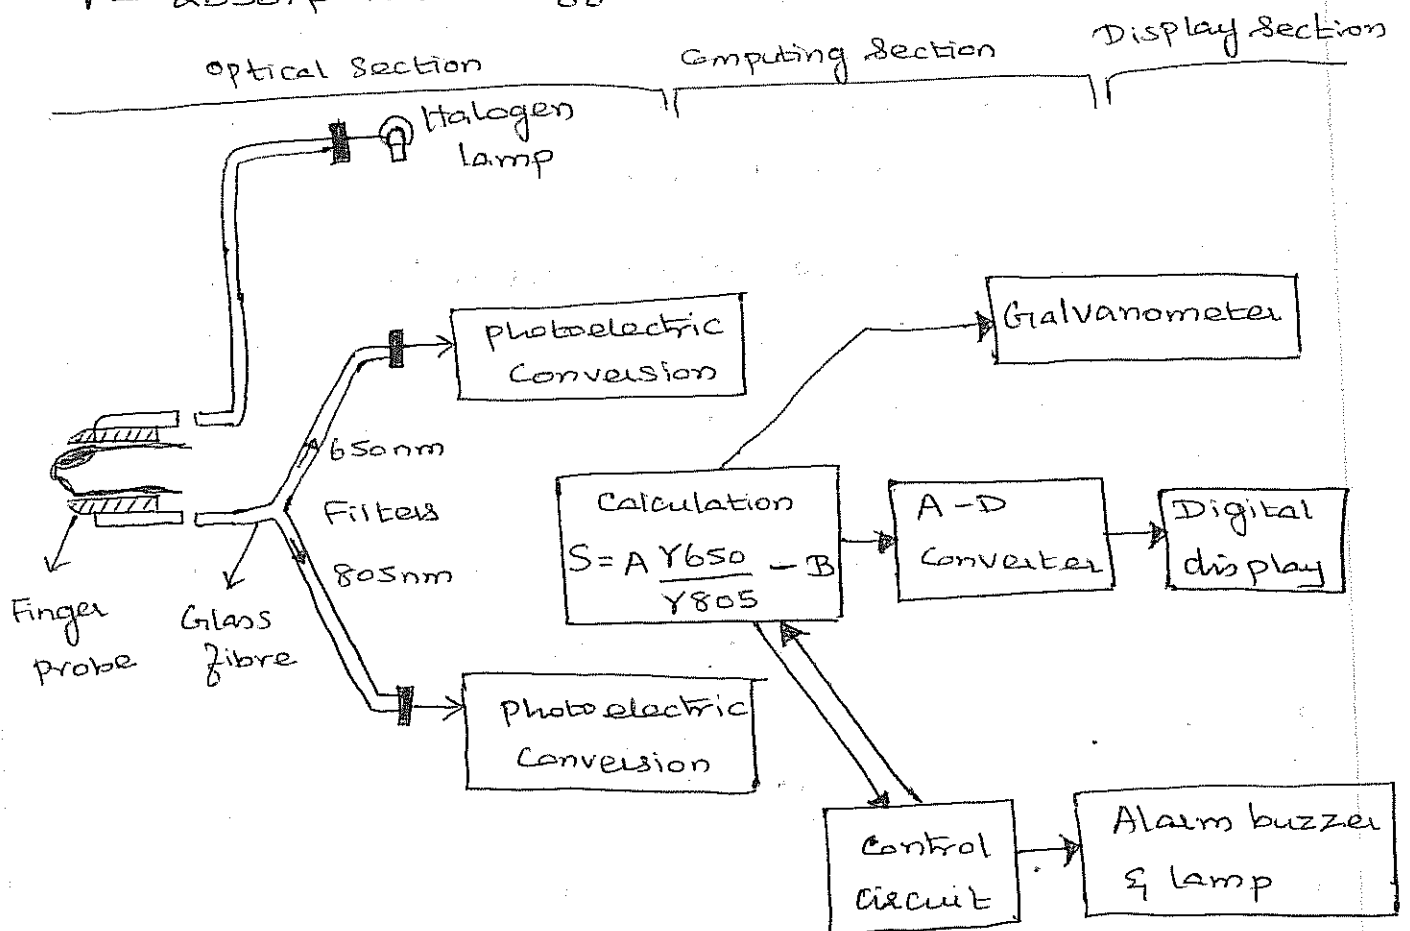 Optical Section
Computing Section
Display Section
Halogen
lamp
photoelectric
Conversion
Galvanometer
650nm
Filters
805nm
Calculation
S = A Y650 / Y805 - B
A-D
Converter
Digital
display
Finger
probe
Glass
fibre
photoelectric
Conversion
Control
circuit
Alarm buzzer
& lamp